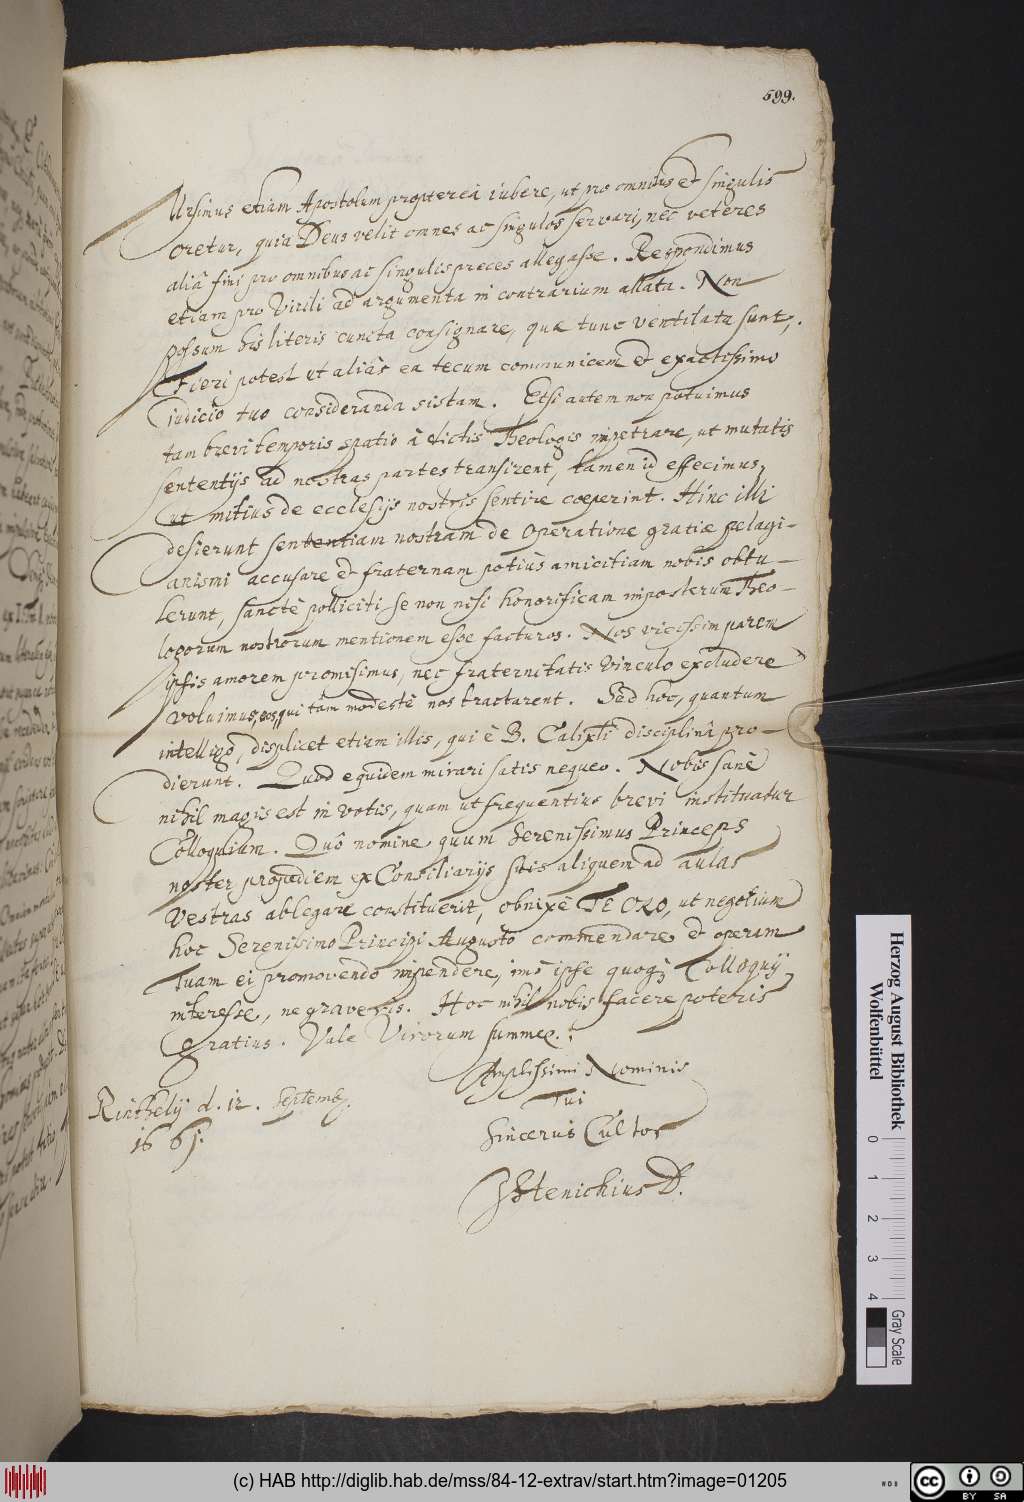 599.
Ursinus etiam Apostolum propterea iubere, ut pro omnibus et singulis
oretur, quia Deus velit omnes ac singulos servari, nec veteres
aliâ fini pro omnibus ac singulis preces allegasse. Respondimus
etiam pro Virili ad argumenta in contrarium allata. Non
possum his literis cuncta consignare, quæ tunc ventilata sunt,.
Fieri potest ut aliâs ea tecum communicem et exactissimo
iudicio tuo consideranda sistam. Etsi autem non potuimus
tam brevi temporis spatio â dictis Theologis impetrare, ut mutatis
sententijs ad nostras partes transirent, tamen id effecimus,
ut mitius de ecclesijs nostris sentire cœperint. Hinc illi
desierunt sententiam nostram de operatione gratiæ pelagi-
anismi accusare et fraternam potiùs amicitiam nobis obtu-
lerunt, sanctè polliciti se non nisi honorificam imposterum Theo-
logorum nostrorum mentionem esse facturos. Nos vicissim parem
ipsis amorem promisimus, nec fraternitatis vinculo excludere
voluimus, eos, qui tàm modestè nos tractarent. Sed hoc, quantum
intelligo, displicet etiam illis, qui è B. Calixti disciplinâ pro-
dierunt. Quod equidem mirari satis nequeo. Nobis sanè
nihil magis est in votis, quam ut frequentius brevi instituatur
Colloquium. Quô nomine quum Serenissimus Princeps
noster propediem ex Consiliarijs suis aliquem ad aulas
vestras ablegare constituerit, obnixè TE ORO, ut negotium
hoc Serenissimo Principi Augusto commendare et operam
Tuam ei promovendo impendere, imò ipse quoq; Colloquij
interesse, ne graveris. Hoc nihil nobis facere poteris
gratius. Vale Virorum summe.
Amplissimi Nominis
Tui
Rinthelij d. 12. Septemb.
1661.
Sincerus Cultor
JHenichius D.
Herzog August Bibliothek
Wolfenbüttel
0 1 2 3 4
Gray Scale
(c) HAB http://diglib.hab.de/mss/84-12-extrav/start.htm?image=01205
cc BY SA